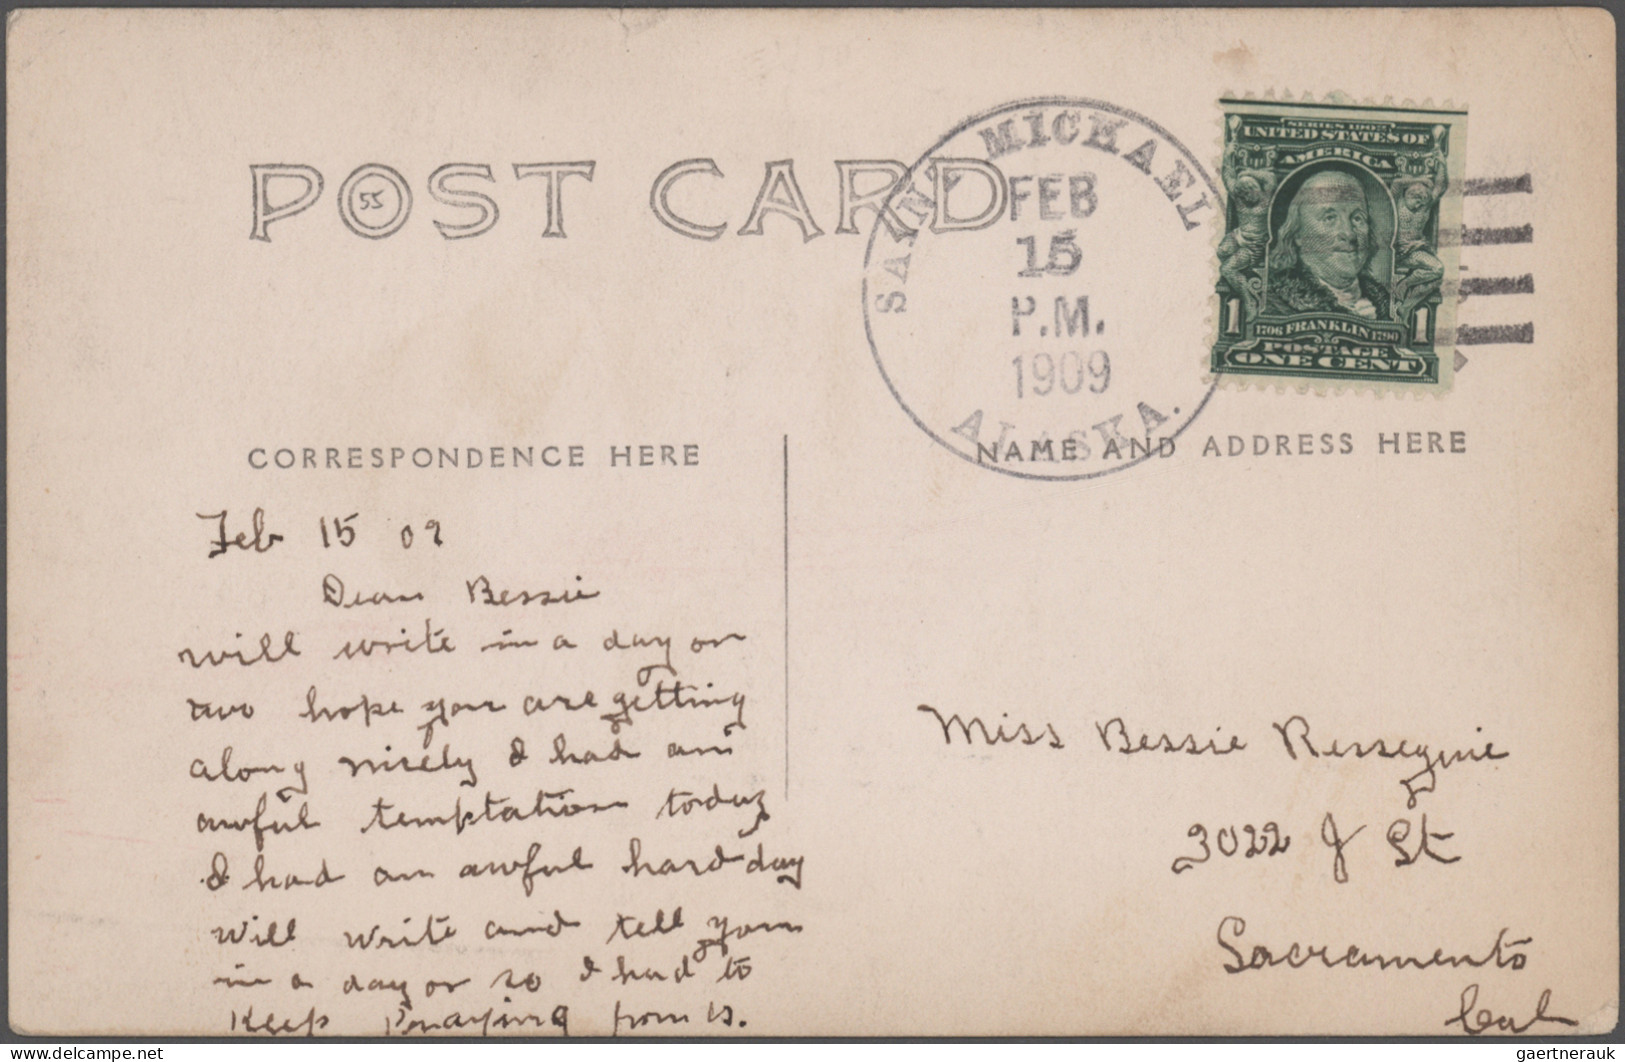 POST CARD
55
SAINT MICHAEL
FEB
15
P.M.
1909
ALASKA.
SERIES 1902
UNITED STATES OF
AMERICA
1 1
1706 FRANKLIN 1790
POSTAGE
ONE CENT
CORRESPONDENCE HERE
NAME AND ADDRESS HERE
Feb 15 09
Dear Bessie
will write in a day or
two hope you are getting
along nisely I had an
awful temptation today
I had an awful hard day
will write and tell you
in a day or so I had to
Keep Praying from
Miss Bessie Resseguie
3022 J St
Sacramento
Cal
delcampe.net
gaertnerauk